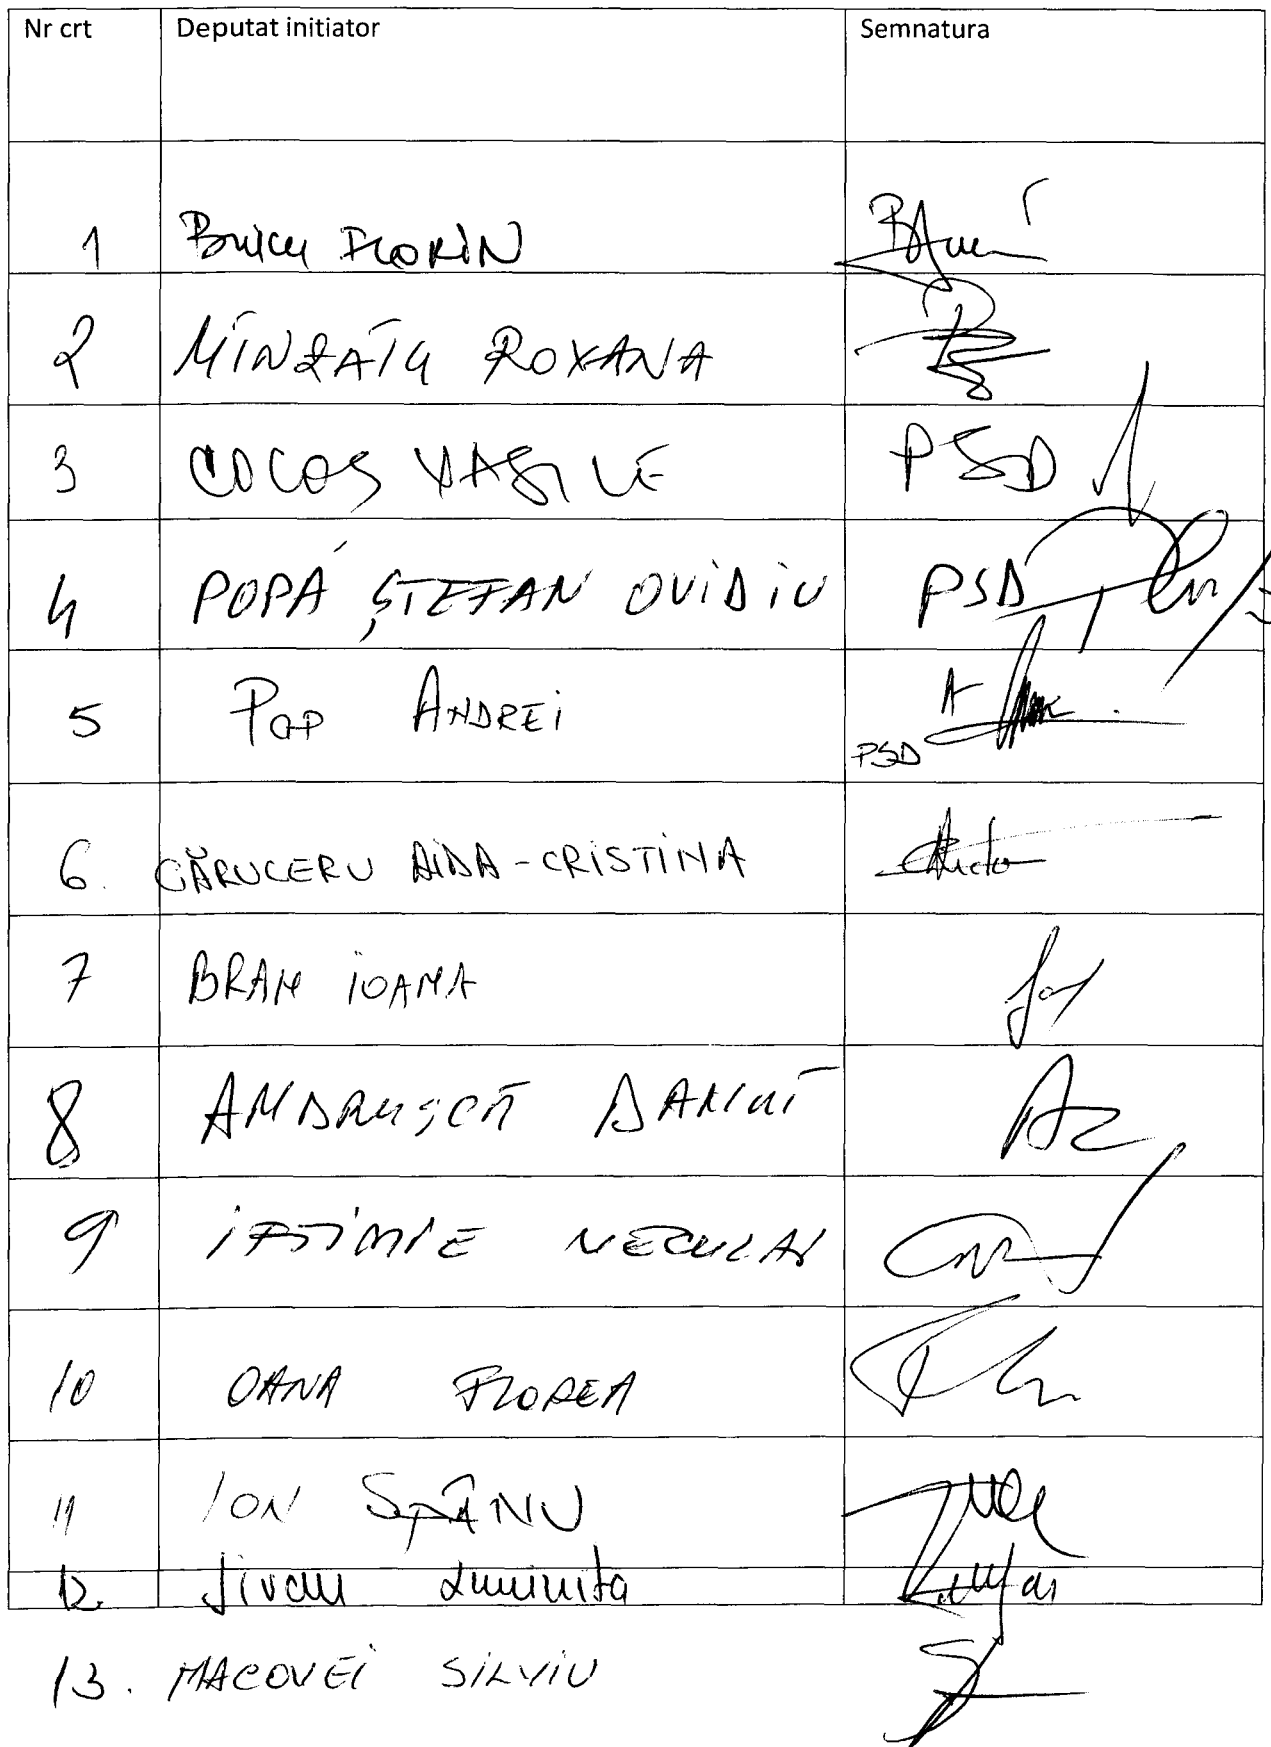 Nr crt Deputat initiator Semnatura
1 Buicu FLORIN
2 MÎNZATU ROXANA
3 COCOS VASILE PSD
4 POPA ȘTEFAN OVIDIU PSD
5 POP ANDREI A
PSD
6. CĂRUCERU AIDA-CRISTINA
7 BRAN IOANA
8 ANDRUȘCĂ DANUȚ
9 IFTIMIE NECULAI
10 OANA FLOREA
11 ION SPÂNU
12. Jivan Luminita
13. MACOVEI SILVIU